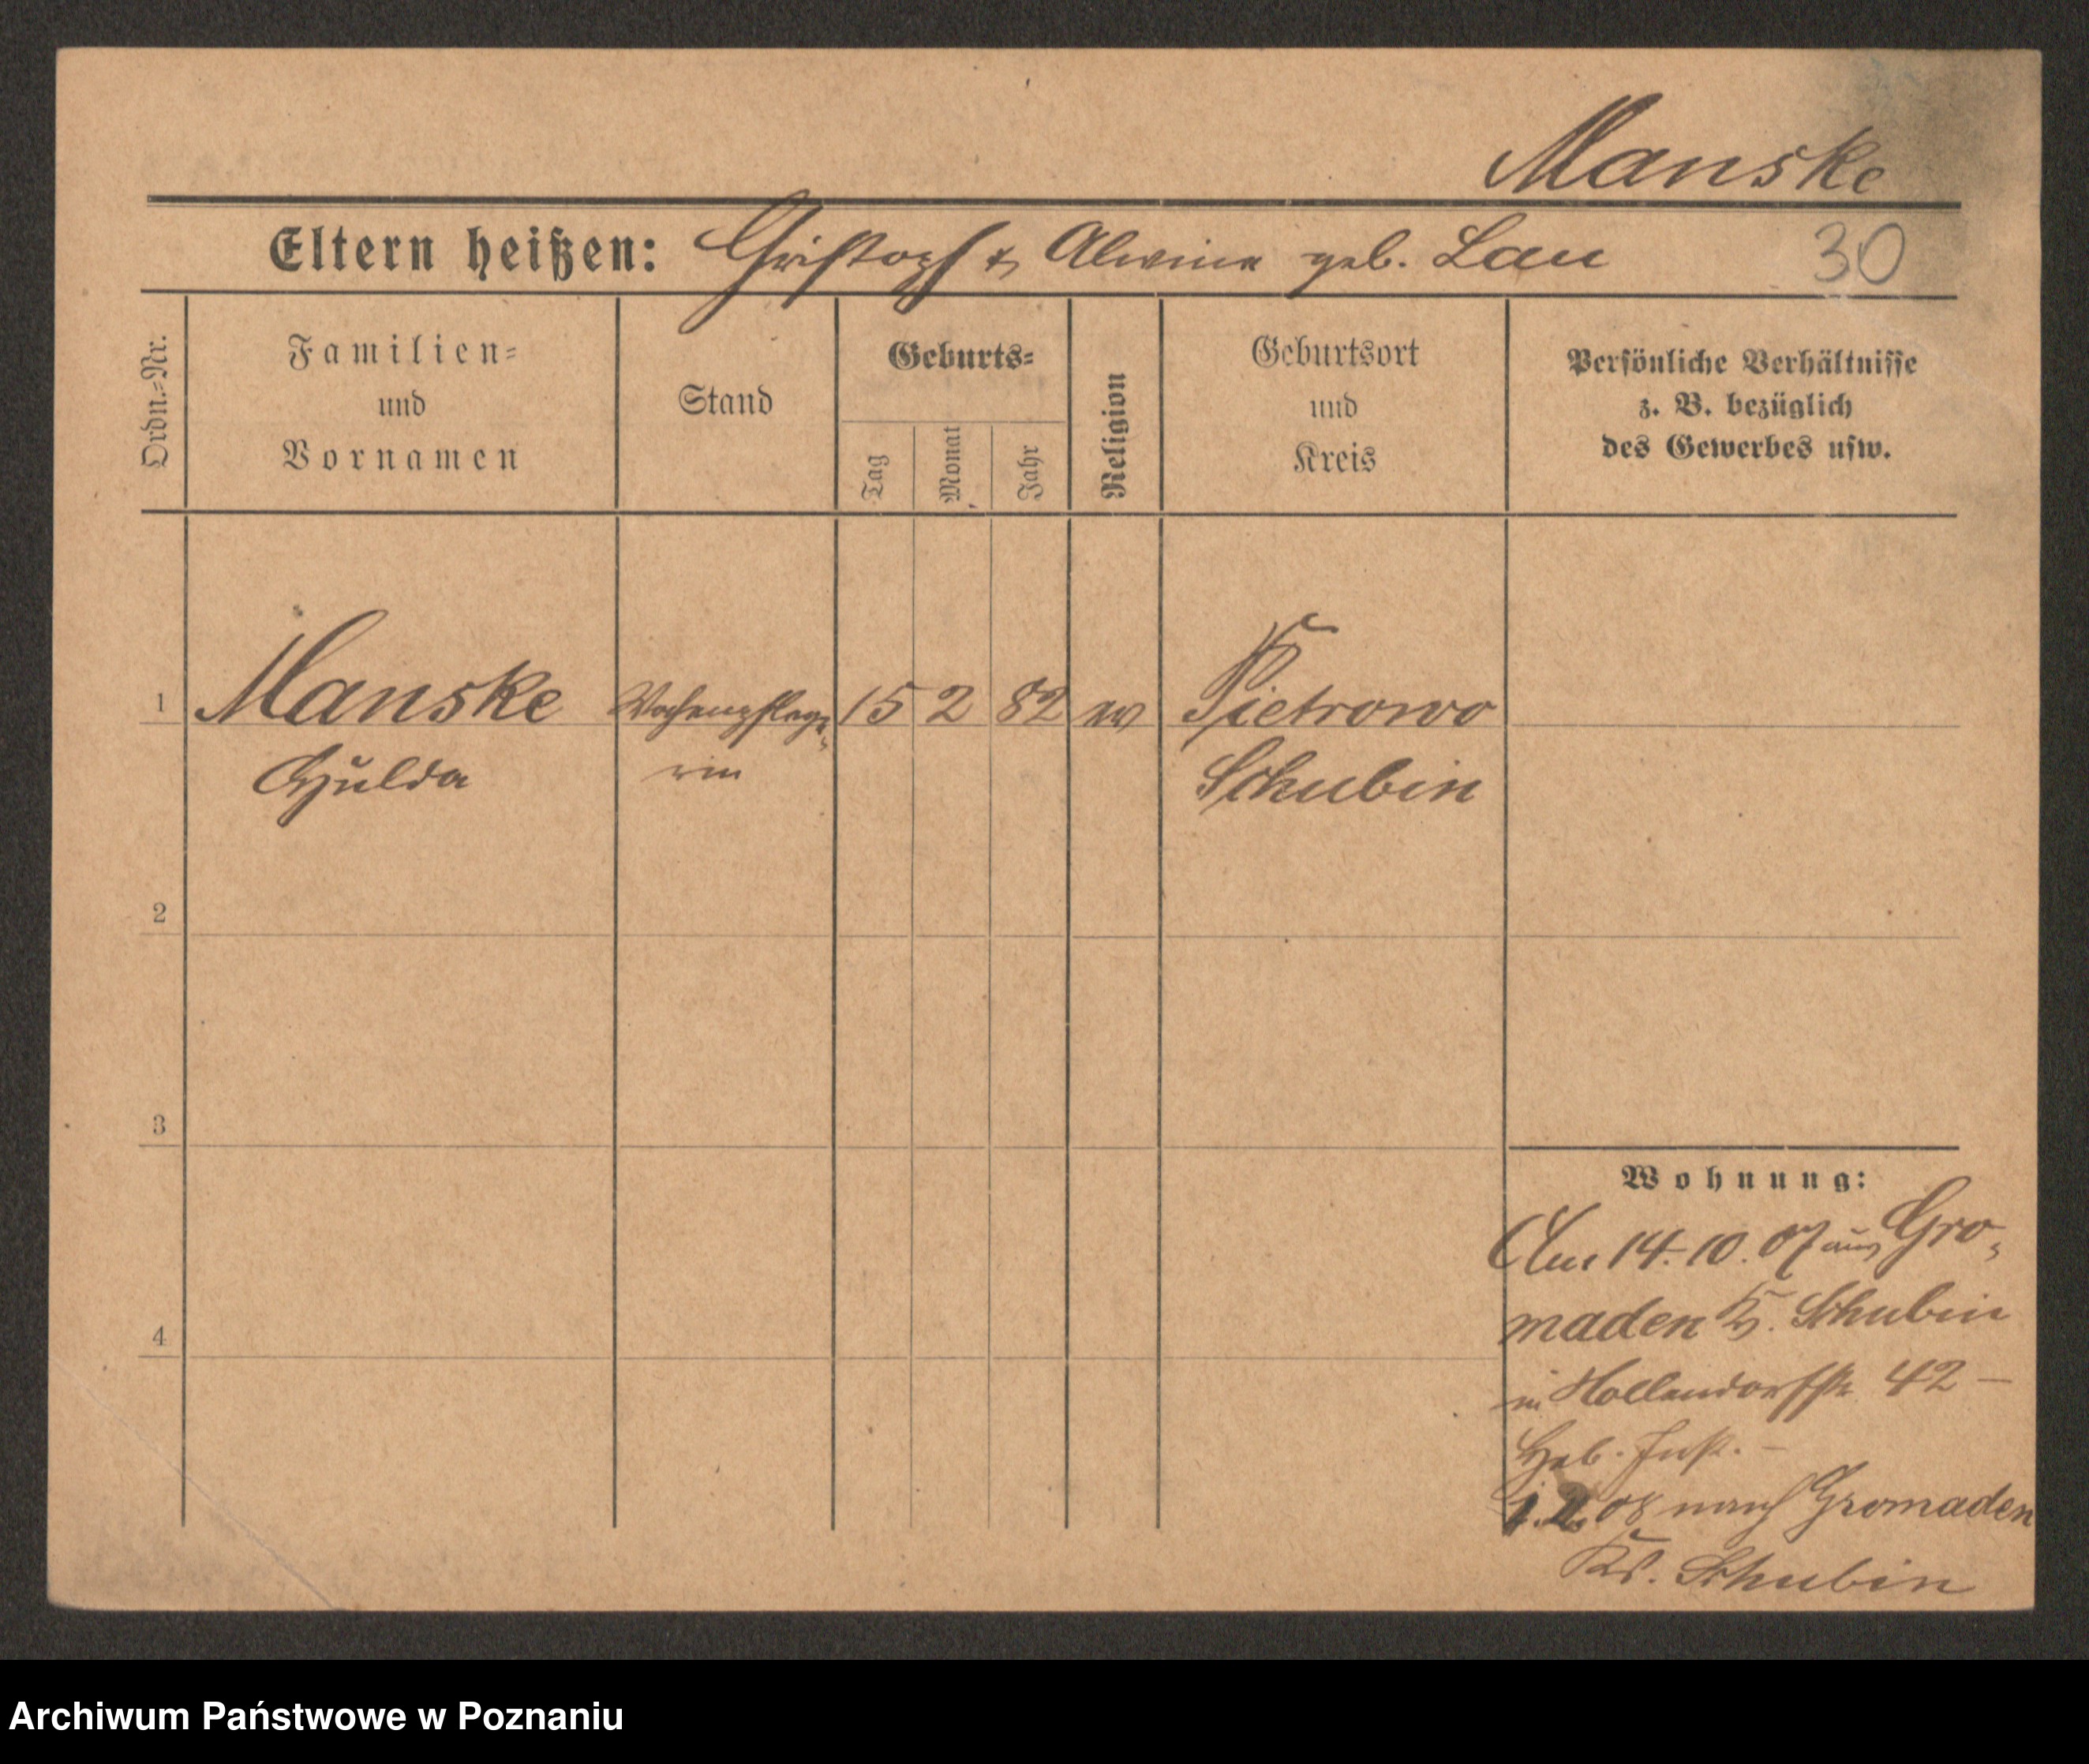 Manske
Eltern heißen: Christoph & Alwine geb. Lau 30
Ordn.-Nr.
Familien-
und
Vornamen
Stand
Geburts-
Tag
Monat
Jahr
Religion
Geburtsort
und
Kreis
Persönliche Verhältnisse
z. B. bezüglich
des Gewerbes usw.
1 Manske Wochenpflege- 15 2 82 ev Pietrowo
Hulda rin Schubin
2
3
4
Wohnung:
Am 14.10.07 aus Gro-
maden Kr. Schubin
in Hollendorfstr 42 –
Heb. Inst. –
1.2.08 nach Gromaden
Kr. Schubin
Archiwum Państwowe w Poznaniu